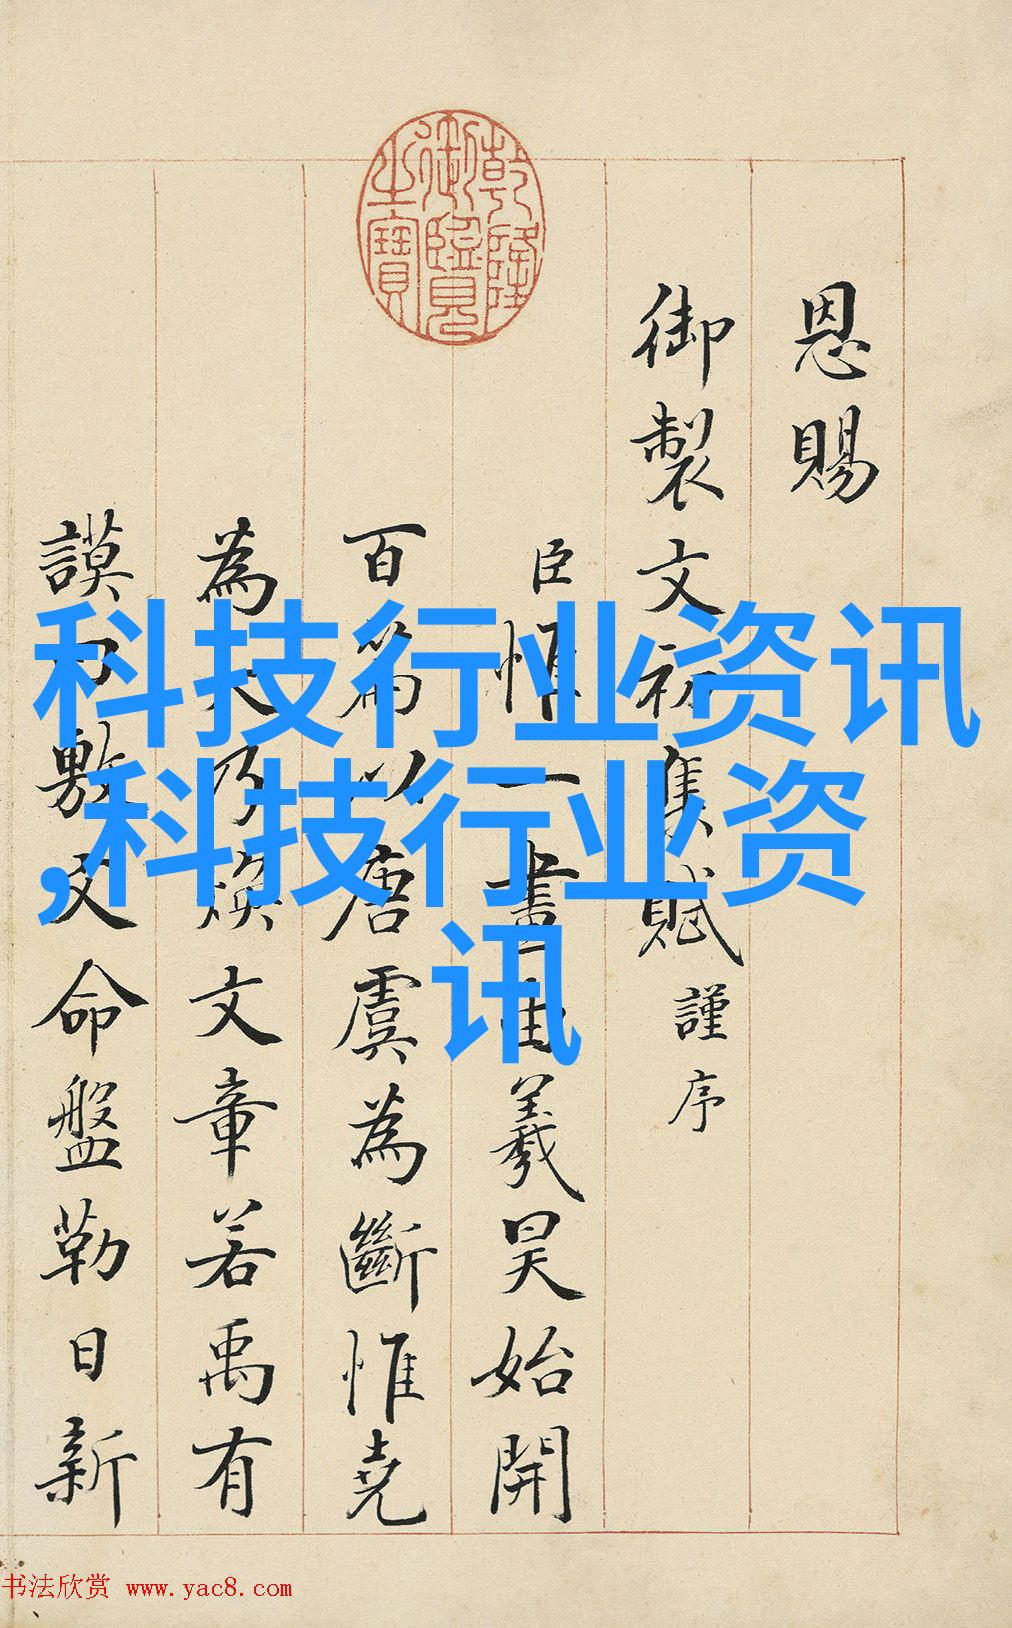 恩賜
御製文初集賦謹序
臣惟一書由羲昊始開
百篇以唐虞為斷惟堯
為大乃煥文章若禹有
謨曰敷文命盤勒日新
乾隆
御覽
之寶
科技行业资讯
,科技行业资
讯
书法欣赏 www.yac8.com